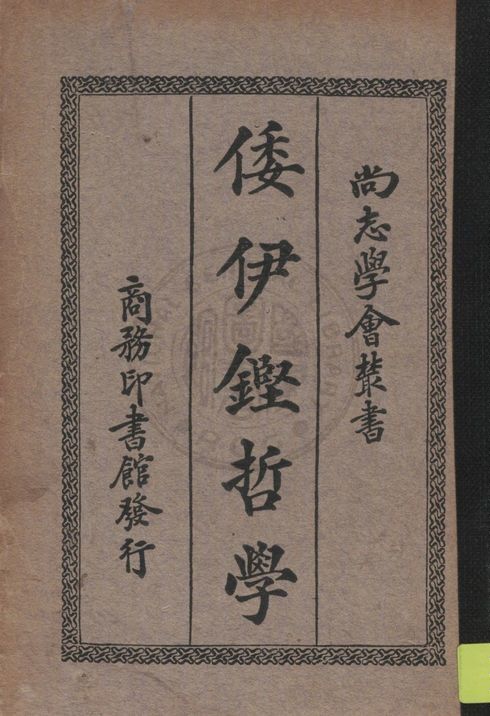 尚志學會叢書
倭伊鏗哲學
商務印書館發行